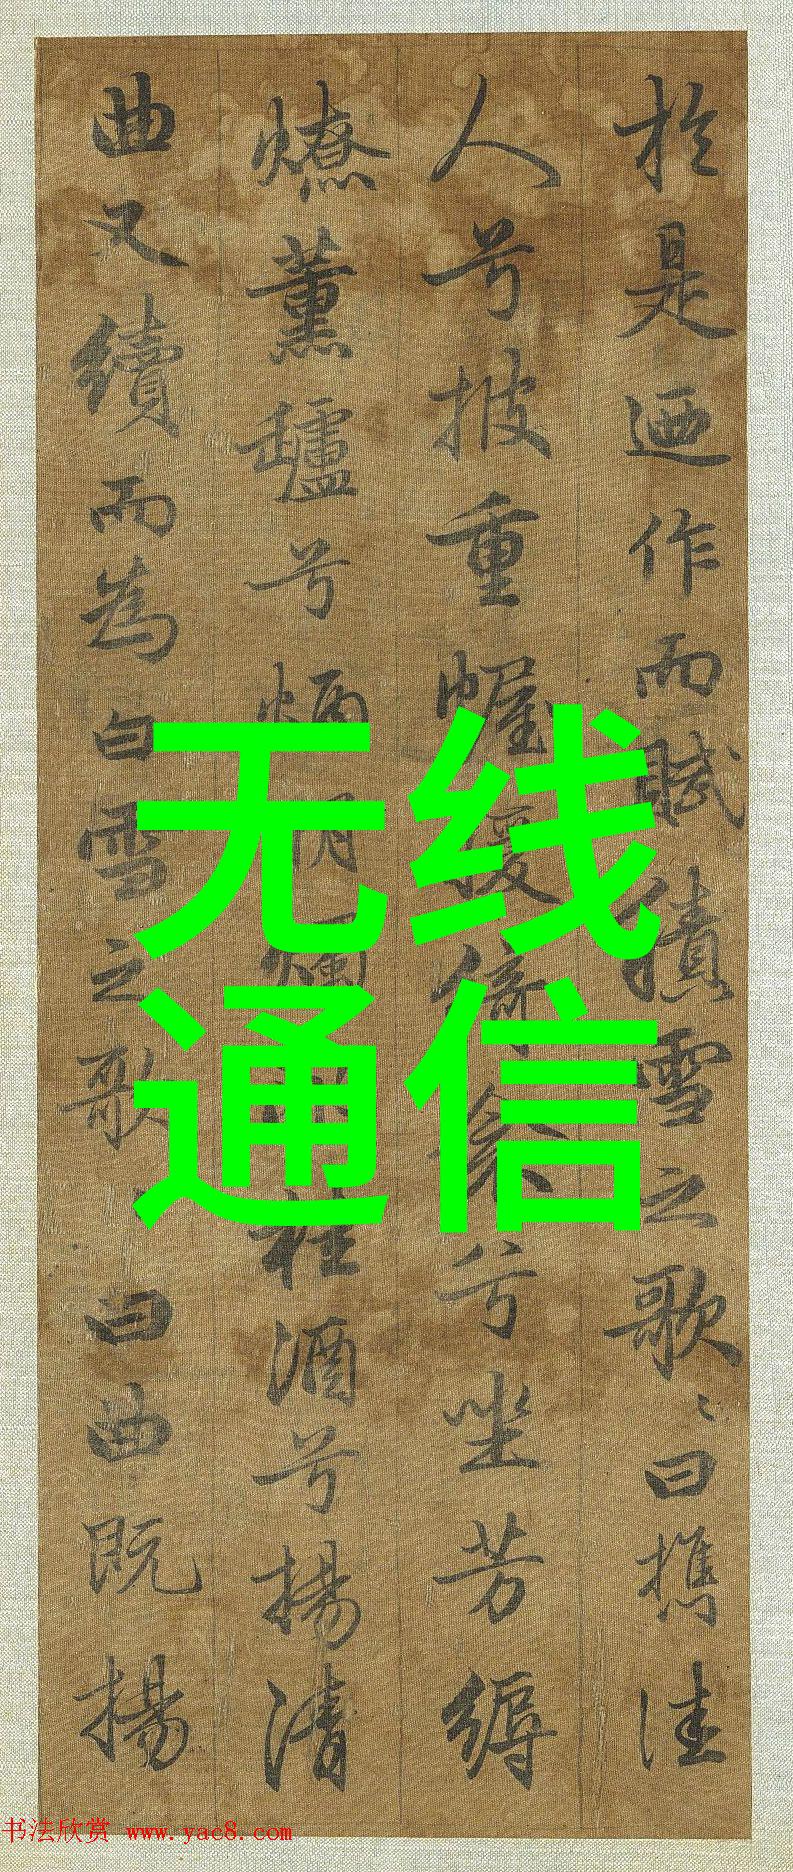 於是迺作而賦積雪之歌〻曰攜佳
人兮披重幄援綺衾兮坐芳縟
燎薰罏兮炳明燭桂酒兮揚清
曲又續而為白雪之歌〻曰曲既揚
无线
通信
书法欣赏 www.yac8.com